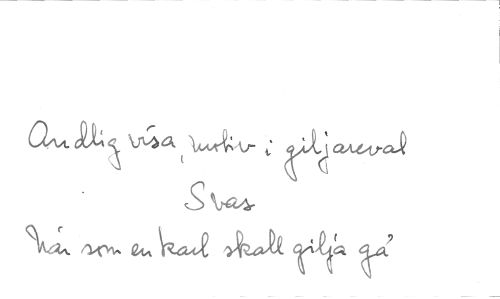 Andlig visa, motiv i giljareval
Svas
När som en karl skall gilja gå